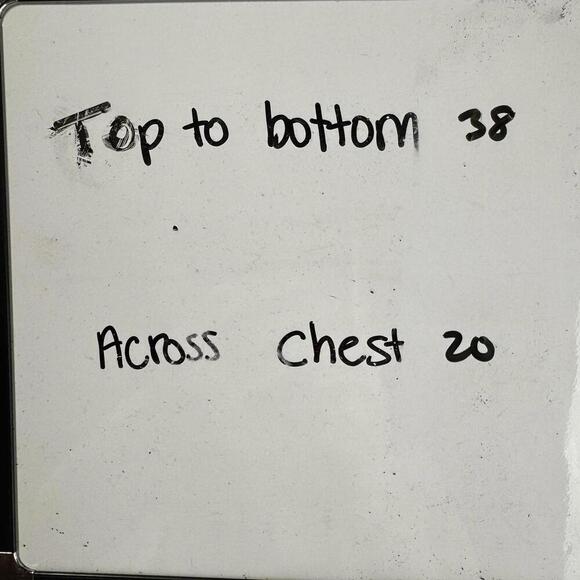 Top to bottom 38
Across Chest 20